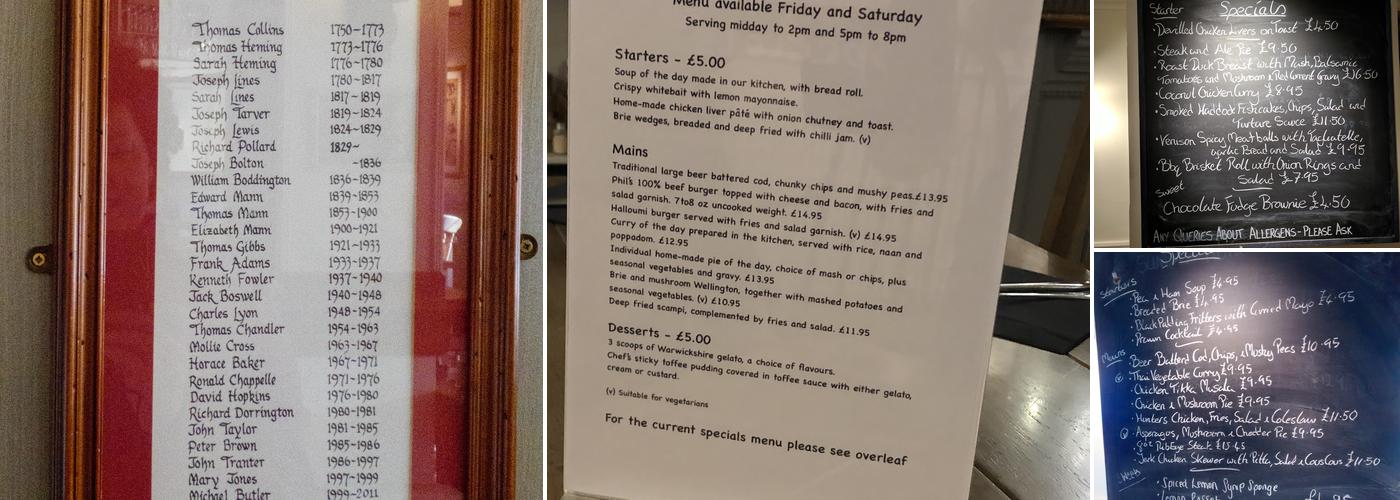 Thomas Collins 1750~1773
Thomas Heming 1773~1776
Sarah Heming 1776~1780
Joseph Lines 1780~1817
Sarah Lines 1817~1819
Joseph Tarver 1819~1824
Joseph Lewis 1824~1829
Richard Pollard 1829~
Joseph Bolton ~1836
William Boddington 1836~1839
Edward Mann 1839~1853
Thomas Mann 1853~1900
Elizabeth Mann 1900~1921
Thomas Gibbs 1921~1933
Frank Adams 1933~1937
Kenneth Fowler 1937~1940
Jack Boswell 1940~1948
Charles Lyon 1948~1954
Thomas Chandler 1954~1963
Mollie Cross 1963~1967
Horace Baker 1967~1971
Ronald Chappelle 1971~1976
David Hopkins 1976~1980
Richard Dorrington 1980~1981
John Taylor 1981~1985
Peter Brown 1985~1986
John Tranter 1986~1997
Mary Jones 1997~1999
Michael Butler 1999~2011
Menu available Friday and Saturday
Serving midday to 2pm and 5pm to 8pm
Starters - £5.00
Soup of the day made in our kitchen, with bread roll.
Crispy whitebait with lemon mayonnaise.
Home-made chicken liver pâté with onion chutney and toast.
Brie wedges, breaded and deep fried with chilli jam. (v)
Mains
Traditional large beer battered cod, chunky chips and mushy peas.£13.95
Phil's 100% beef burger topped with cheese and bacon, with fries and
salad garnish. 7to8 oz uncooked weight. £14.95
Halloumi burger served with fries and salad garnish. (v) £14.95
Curry of the day prepared in the kitchen, served with rice, naan and
poppadom. £12.95
Individual home-made pie of the day, choice of mash or chips, plus
seasonal vegetables and gravy. £13.95
Brie and mushroom Wellington, together with mashed potatoes and
seasonal vegetables. (v) £10.95
Deep fried scampi, complemented by fries and salad. £11.95
Desserts - £5.00
3 scoops of Warwickshire gelato, a choice of flavours.
Chef's sticky toffee pudding covered in toffee sauce with either gelato,
cream or custard.
(v) Suitable for vegetarians
For the current specials menu please see overleaf
Specials
Starter
·Devilled Chicken Livers on Toast £4.50
·Steak and Ale Pie £9.50
·Roast Duck Breast with Mash, Balsamic
Tomatoes and Mushroom & Redcurrent Gravy £16.50
·Coconut Chicken Curry £8.95
·Smoked Haddock Fishcakes, Chips, Salad and
Tartare Sauce £11.50
·Venison Spicy Meatballs with Tagliatelle,
garlic Bread and Salad £9.95
·Bbq Brisket Roll with Onion Rings and
Salad £7.95
Sweet
·Chocolate Fudge Brownie £4.50
ANY QUERIES ABOUT ALLERGENS-PLEASE ASK
Specials
Starters
·Pea & Ham Soup £4.95
·Breaded Brie £4.95
·Black Pudding Fritters with Curried Mayo £4.95
·Prawn Cocktail £4.95
Mains
·Beer Batterd Cod, Chips, & Mushy Peas £10.95
·Thai Vegetable Curry £9.95
·Chicken Tikka Masala £9.95
·Chicken & Mushroom Pie £9.95
·Hunters Chicken, Fries, Salad & Coleslaw £11.50
·Asparagus, Mushroom & Chedder Pie £9.95
·9oz Ribeye Steak £15.45
·Jerk Chicken Skewer with Pitta, Salad & CousCous £11.50
·Spiced Lemon Syrup Sponge